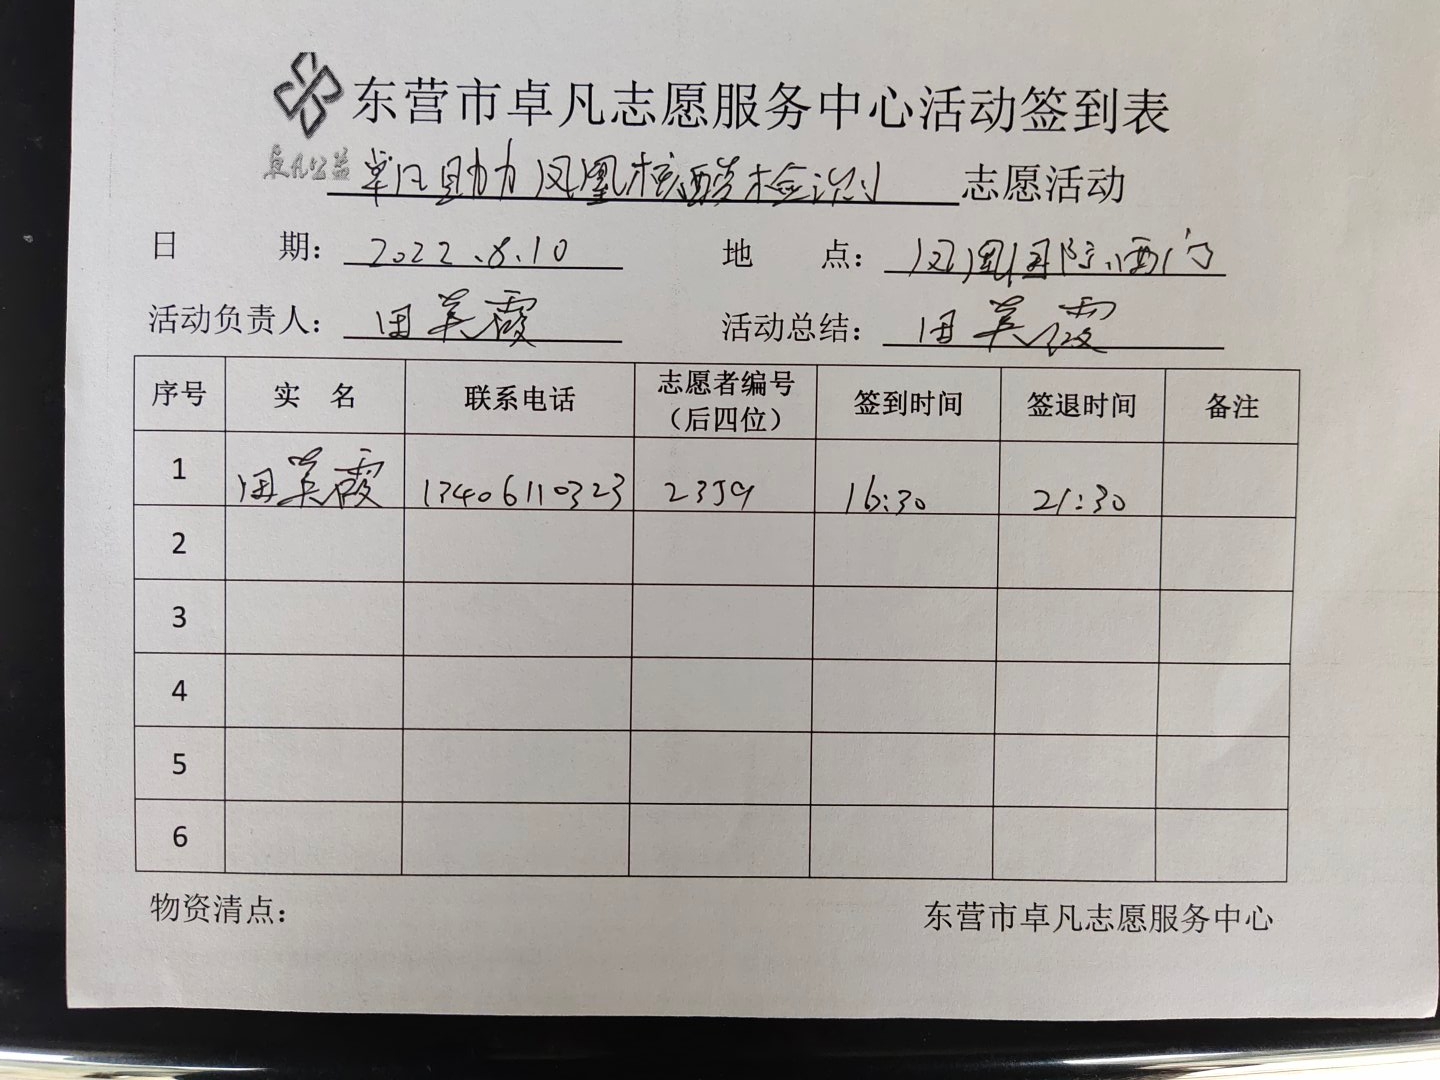 东营市卓凡志愿服务中心活动签到表
卓凡公益
卓凡助力凤凰核酸检测 志愿活动
日 期： 2022.8.10 地 点： 凤凰国际西门
活动负责人： 田英霞 活动总结： 田英霞
序号 实 名 联系电话 志愿者编号（后四位） 签到时间 签退时间 备注
1 田英霞 13406110323 2359 16:30 21:30
2
3
4
5
6
物资清点： 东营市卓凡志愿服务中心